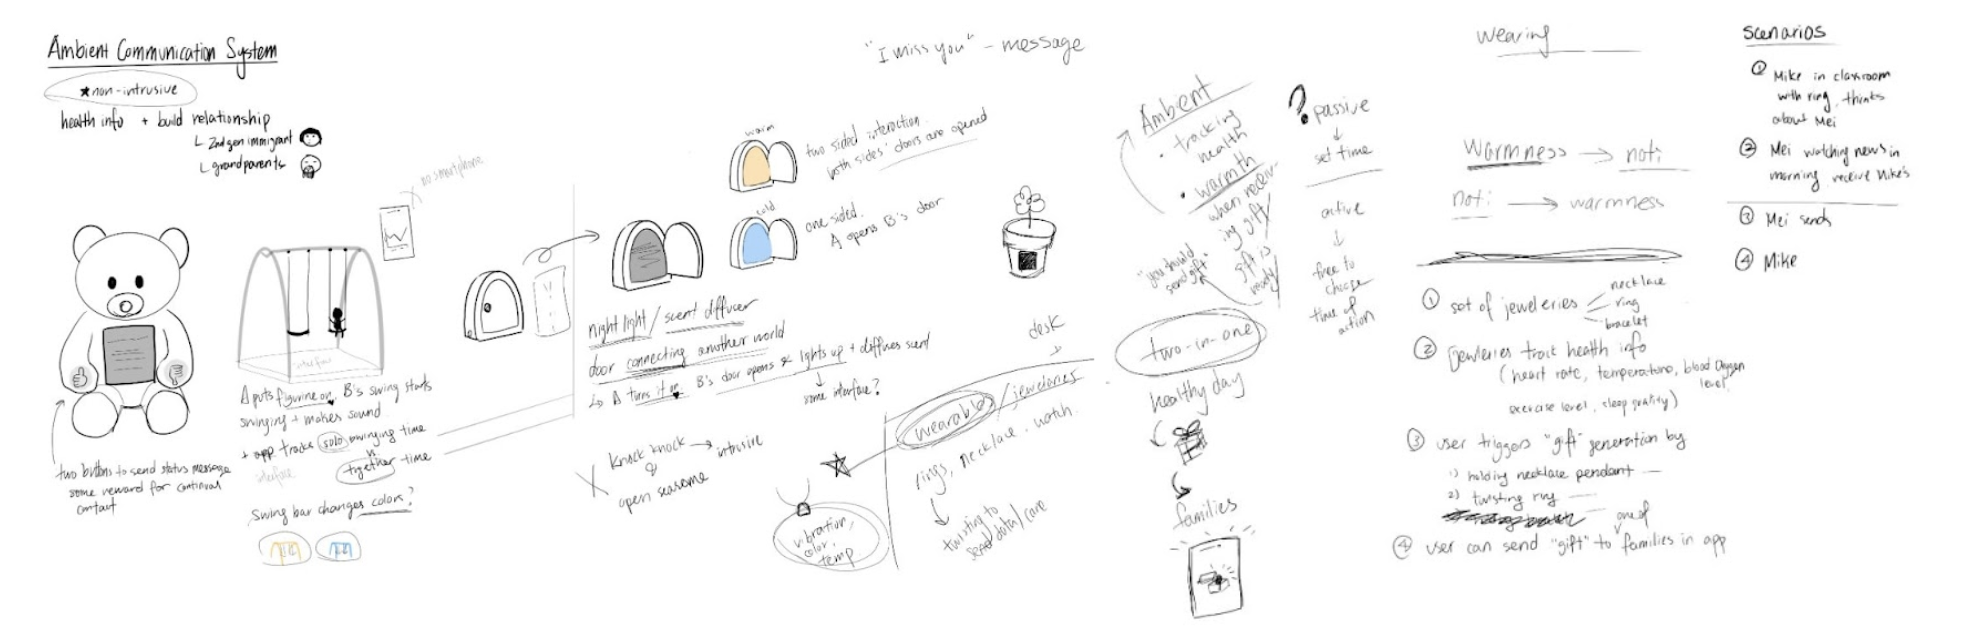 Ambient Communication System
★non-intrusive
health info + build relationship
2nd gen immigrant
grandparents
no smartphone
two buttons to send status message
some reward for continual
contact
interface
A puts figurine on, B's swing starts
swinging + makes sound
+ app tracks solo swinging time
vs
interface
together time
swing bar changes colors?
"I miss you" - message
warm
two sided interaction.
both sides' doors are opened
cold
one sided.
A opens B's door
night light / scent diffuser
door connecting another world
↳ A turns it on, B's door opens & lights up + diffuses scent
some interface?
X knock knock → intrusive
&
open seasome
desk
wearables / jewelries
rings, necklace, watch.
twisting to
send data/care
vibration,
color,
temp.
Ambient
• tracking
health
• warmth
when receiv-
ing gift/
gift is
ready
"you should
send gift"
two-in-one
healthy day
families
? passive
↓
set time
active
↓
free to
choose
time of
action
wearing
Warmness → noti
noti → warmness
① set of jewelries
necklace
ring
bracelet
② jewleries track health info
(heart rate, temperature, blood oxygen
level
exercise level, sleep quality)
③ user triggers "gift" generation by
1) holding necklace pendant
2) twisting ring
one of
④ user can send "gift" to families in app
scenarios
① Mike in classroom
with ring, thinks
about Mei
② Mei watching news in
morning, receive Mike's
③ Mei sends
④ Mike